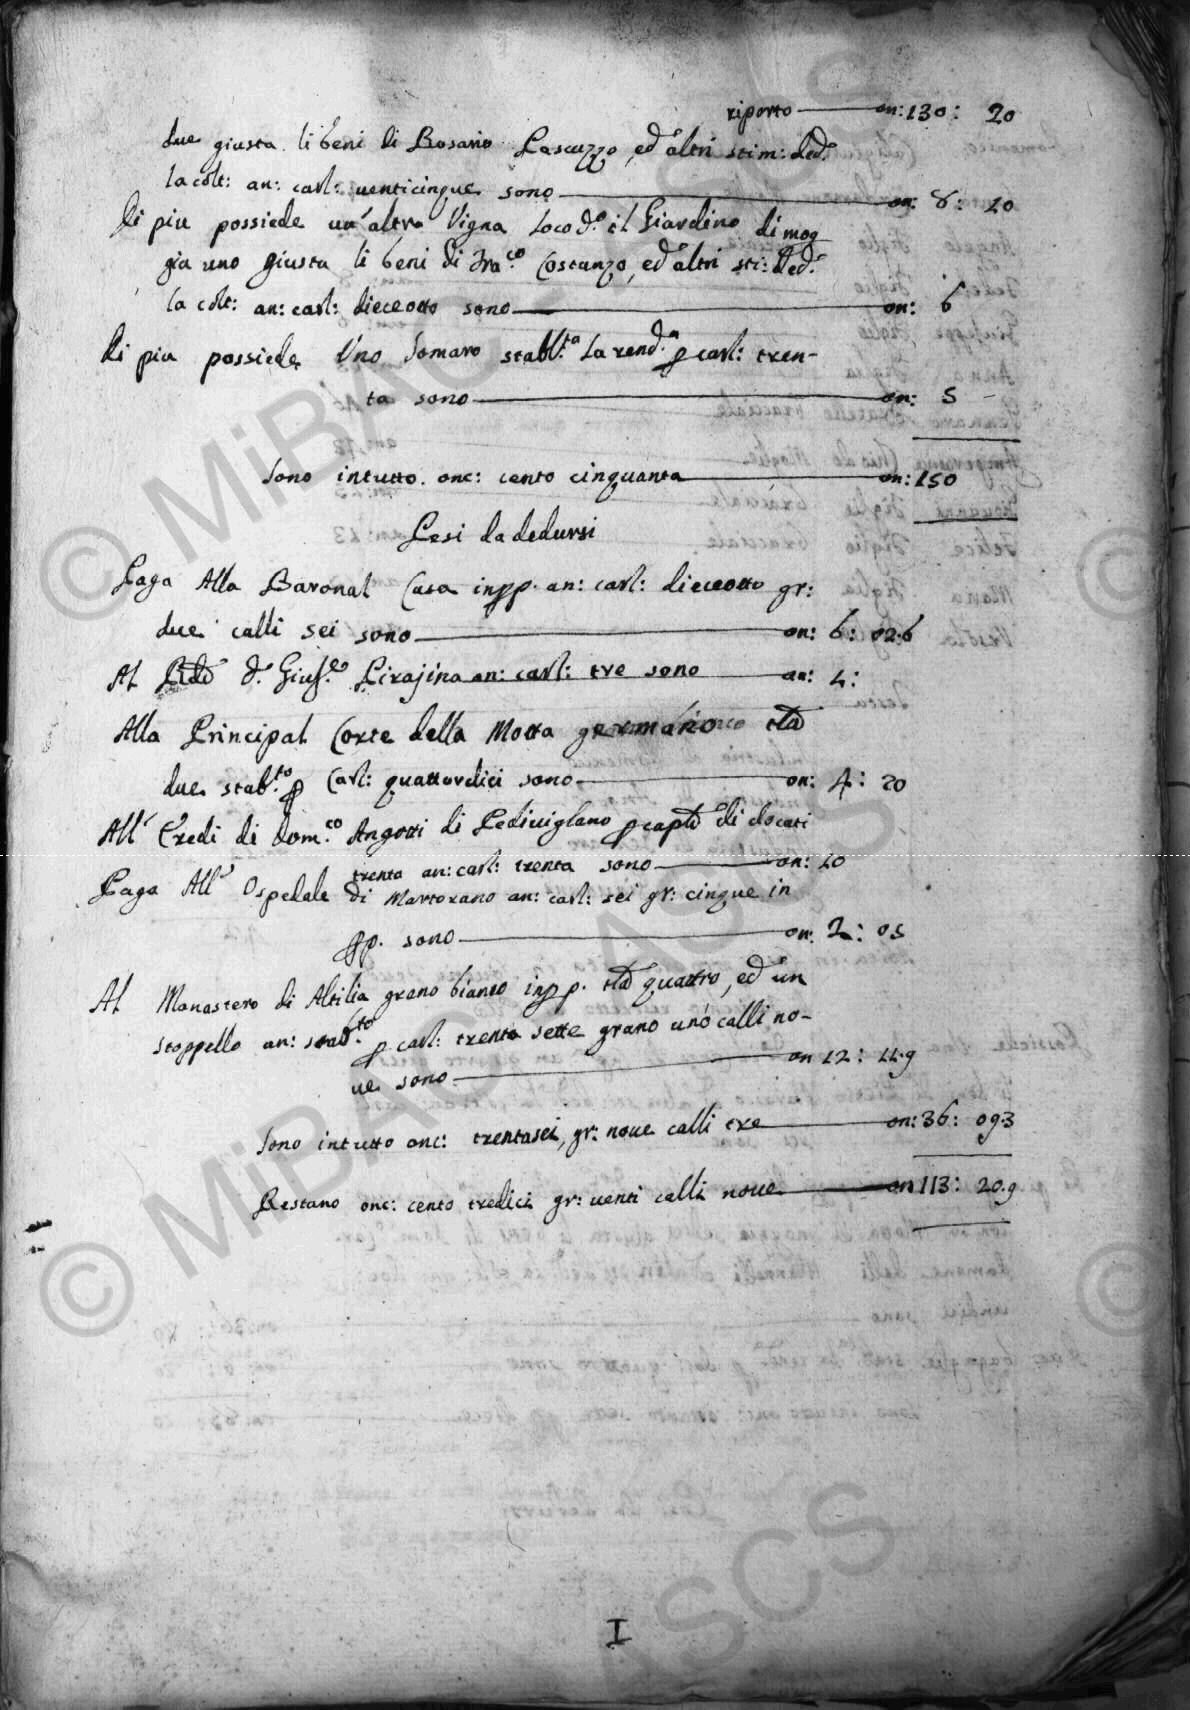 riporto on: 130: 20
due giusta li beni di Rosario Pascuzzo, ed altri stim: ded.ª
la colt: an: carl: venticinque sono on: 8: 10
Di piu possiede un'altra Vigna loco d.º il Giardino di mog
gia uno giusta li beni di Fra.co Costanzo, ed altri sti: ded.ª
la colt: an: carl: dieceotto sono on: 6
Di piu possiede Uno Somaro stabt.ta la rend.a p carl: tren-
ta sono on: 5
Sono intutto onc: cento cinquanta on: 150
Pesi da dedursi
Paga Alla Baronal Casa inpp. an: carl: dieceotto gr:
due calli sei sono on: 6: 02.6
Al d. Gius.e Pirajina an: carl: tre sono on: 1:
Alla Principal Corte della Motta germano tta
due stab.to p Carl: quattordici sono on: 4: 20
All' Eredi di Dom.co Angotti di Pediviglano p captli di docati
trenta an: carl: trenta sono on: 10
Paga All' Ospedale di Martorano an: carl: sei gr: cinque in
pp. sono on: 2: 05
Al Monastero di Altilia grano bianco inpp. tta quattro, ed un
stoppello an: stab.to p carl: trenta sette grano uno calli no-
ve sono on 12: 11.9
Sono intutto onc: trentasei, gr: nove calli tre on: 36: 09.3
Restano onc: cento tredici gr: venti calli nove on 113: 20.9
I
© MiBAC - ASCS
© MiBAC - ASCS
©
©
ASCS